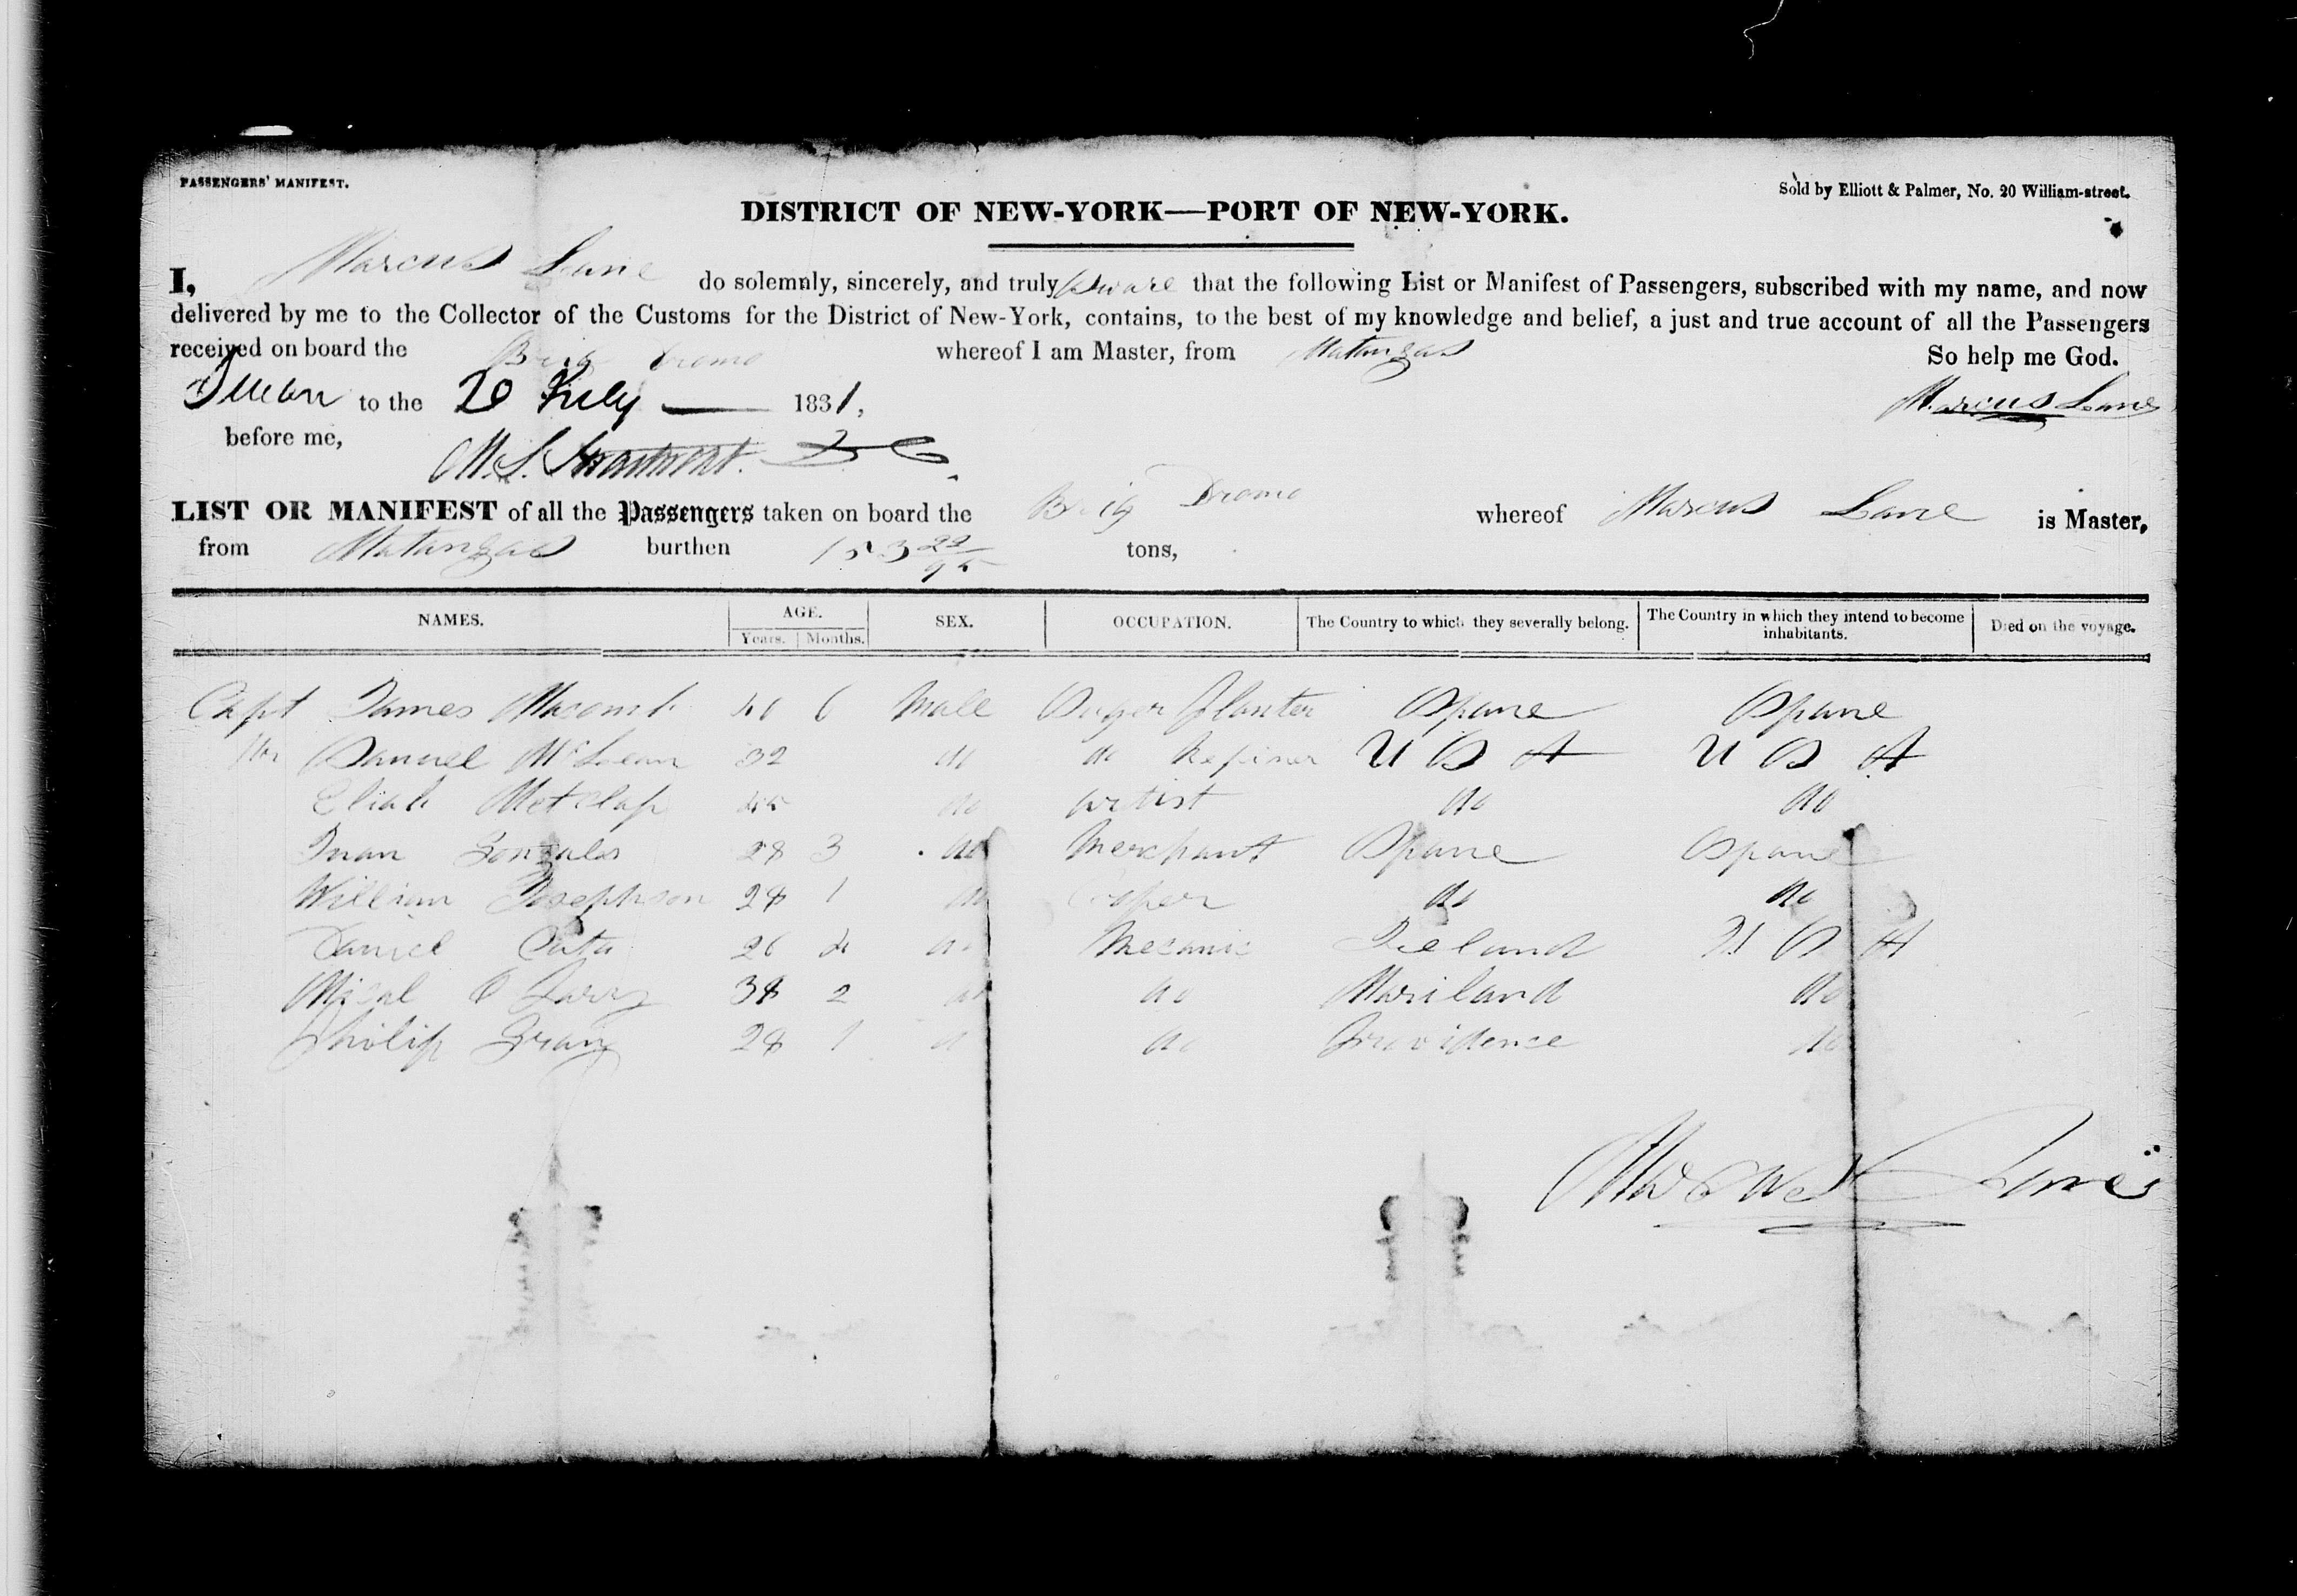 PASSENGERS' MANIFEST.
Sold by Elliott & Palmer, No. 20 William-street.
DISTRICT OF NEW-YORK—PORT OF NEW-YORK.
I, Marcus Lane do solemnly, sincerely, and truly Sware that the following List or Manifest of Passengers, subscribed with my name, and now
delivered by me to the Collector of the Customs for the District of New-York, contains, to the best of my knowledge and belief, a just and true account of all the Passengers
received on board the Brig Dromo whereof I am Master, from Matanzas So help me God.
to the 20 July 1831, Marcus Lane
before me,
LIST OR MANIFEST of all the Passengers taken on board the Brig Dromo whereof Marcus Lane is Master,
from Matanzas burthen tons,
NAMES. AGE. SEX. OCCUPATION. The Country to which they severally belong. The Country in which they intend to become inhabitants. Died on the voyage.
Years. Months.
Capt James Macomb 40 6 Male Suger Planter Spane Spane
Mr Samuel McLean 32 do do Refiner U S A U S A
Eliah Metclap 45 do artist do do
Juan Gonzales 28 3 do Merchant Spane Spane
William Josephson 28 1 do Cooper do do
Daniel 26 4 do Mecanic Ireland U S A
Mical O 38 2 do do Mariland do
Philip Grany 28 1 d do Providence do
Marcus Lane